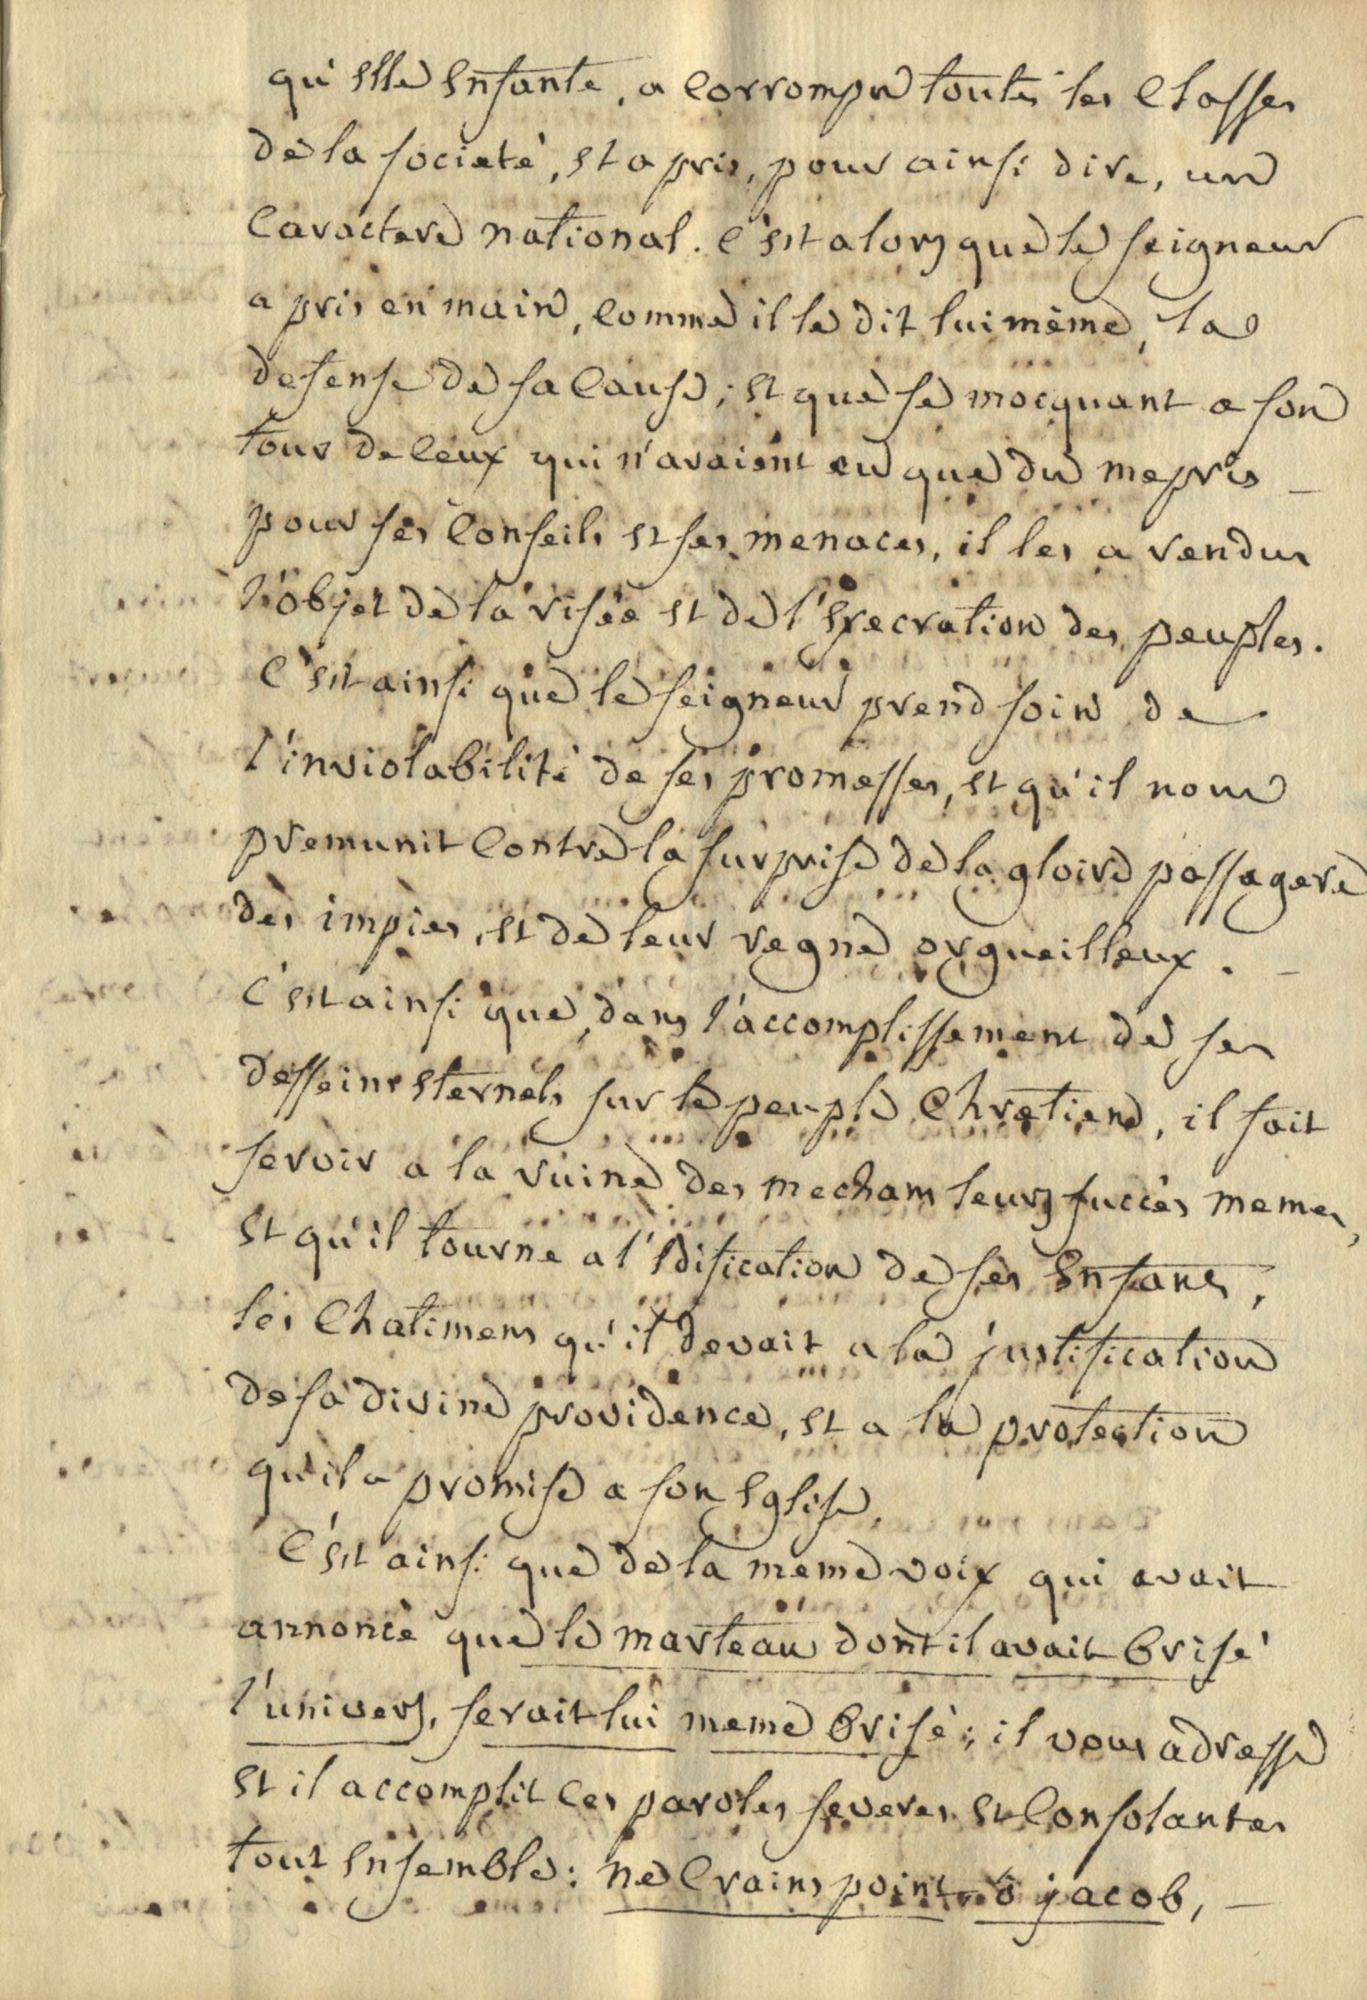 qu'elle enfante, a corrompu toutes les classes
de la societé, et a pris, pour ainsi dire, un
caractere national. c'est alors que le seigneur
a pris en main, comme il le dit lui même, la
defense de sa cause; et que se mocquant a son
tour de ceux qui n'avaient eu que du mepris
pour ses conseils et ses menaces, il les a rendus
l'objet de la risée et de l'execration des peuples.
c'est ainsi que le seigneur prend soin de
l'inviolabilité de ses promesses, et qu'il nous
premunit contre la surprise de la gloire passagere
des impies, et de leur regne orgueilleux.
c'est ainsi que, dans l'accomplissement de ses
desseins eternels sur le peuple chretien, il fait
servir a la ruine des mechans leurs succès memes,
et qu'il tourne a l'edification de ses enfans,
les chatimens qu'il devait a la justification
de sa divine providence, et a la protection
qu'il a promise a son eglise.
C'est ainsi que de la meme voix qui avait
annoncé que le marteau dont il avait brisé
l'univers, serait lui meme brisé; il vous adresse
et il accomplit ces paroles severes et consolantes
tout ensemble: ne crains point ô jacob,